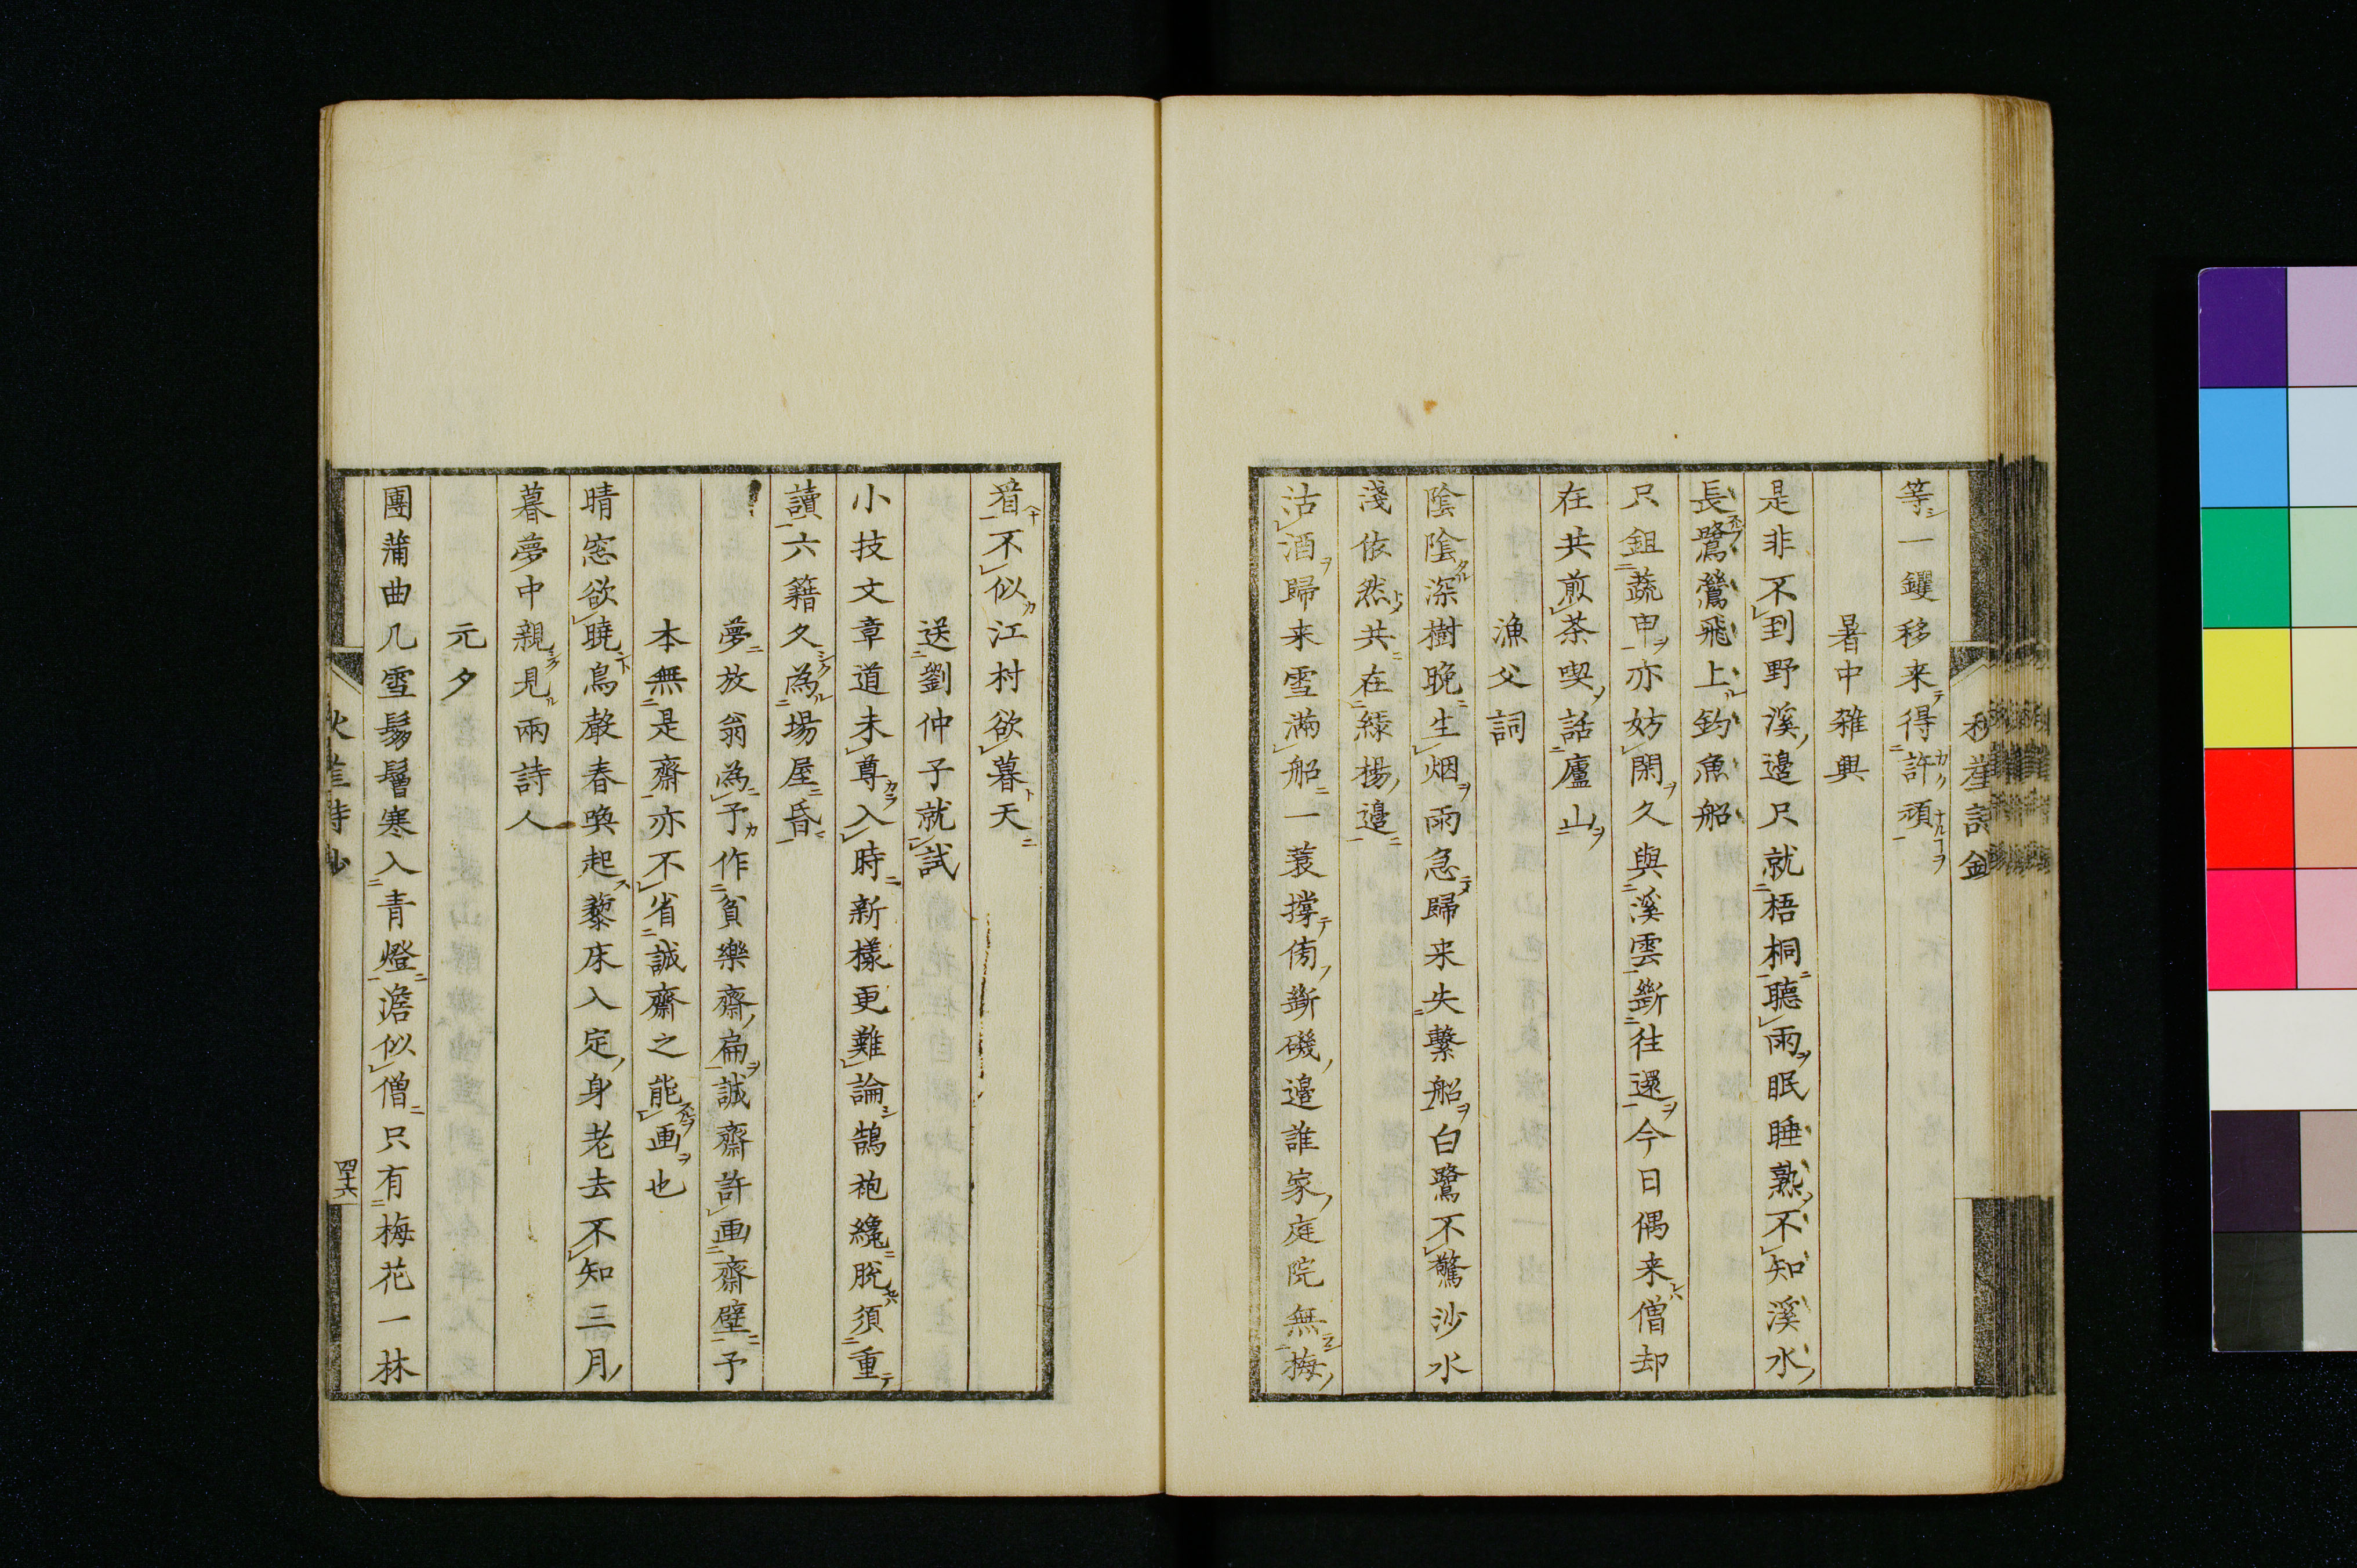 等一钁移来得許頑
暑中雜興
是非不到野溪邉只就梧桐聽雨眠睡熟不知溪水
長鷺鶿飛上釣魚船
只鉏蔬甲亦妨閑久與溪雲斷往還今日偶来僧却
在共煎茶喫話廬山
漁父詞
陰陰深樹晚生烟雨急歸来失繫船白鷺不驚沙水
淺依然共在綠楊邉
沽酒歸来雪滿船一蓑撐傍斷磯邉誰家庭院無梅
㸔不似江村欲暮天
送劉仲子就試
小技文章道未尊入時新樣更難論鵠袍纔脫須重
讀六籍久為場屋昏
夢放翁為予作貧樂齋扁誠齋許画齋壁予
本無是齋亦不省誠齋之能画也
晴窓欲曉鳥聲春喚起藜床入定身老去不知三月
暮夢中親見兩詩人
元夕
團蒲曲几雪鬅鬙寒入青燈澹似僧只有梅花一林
四十六